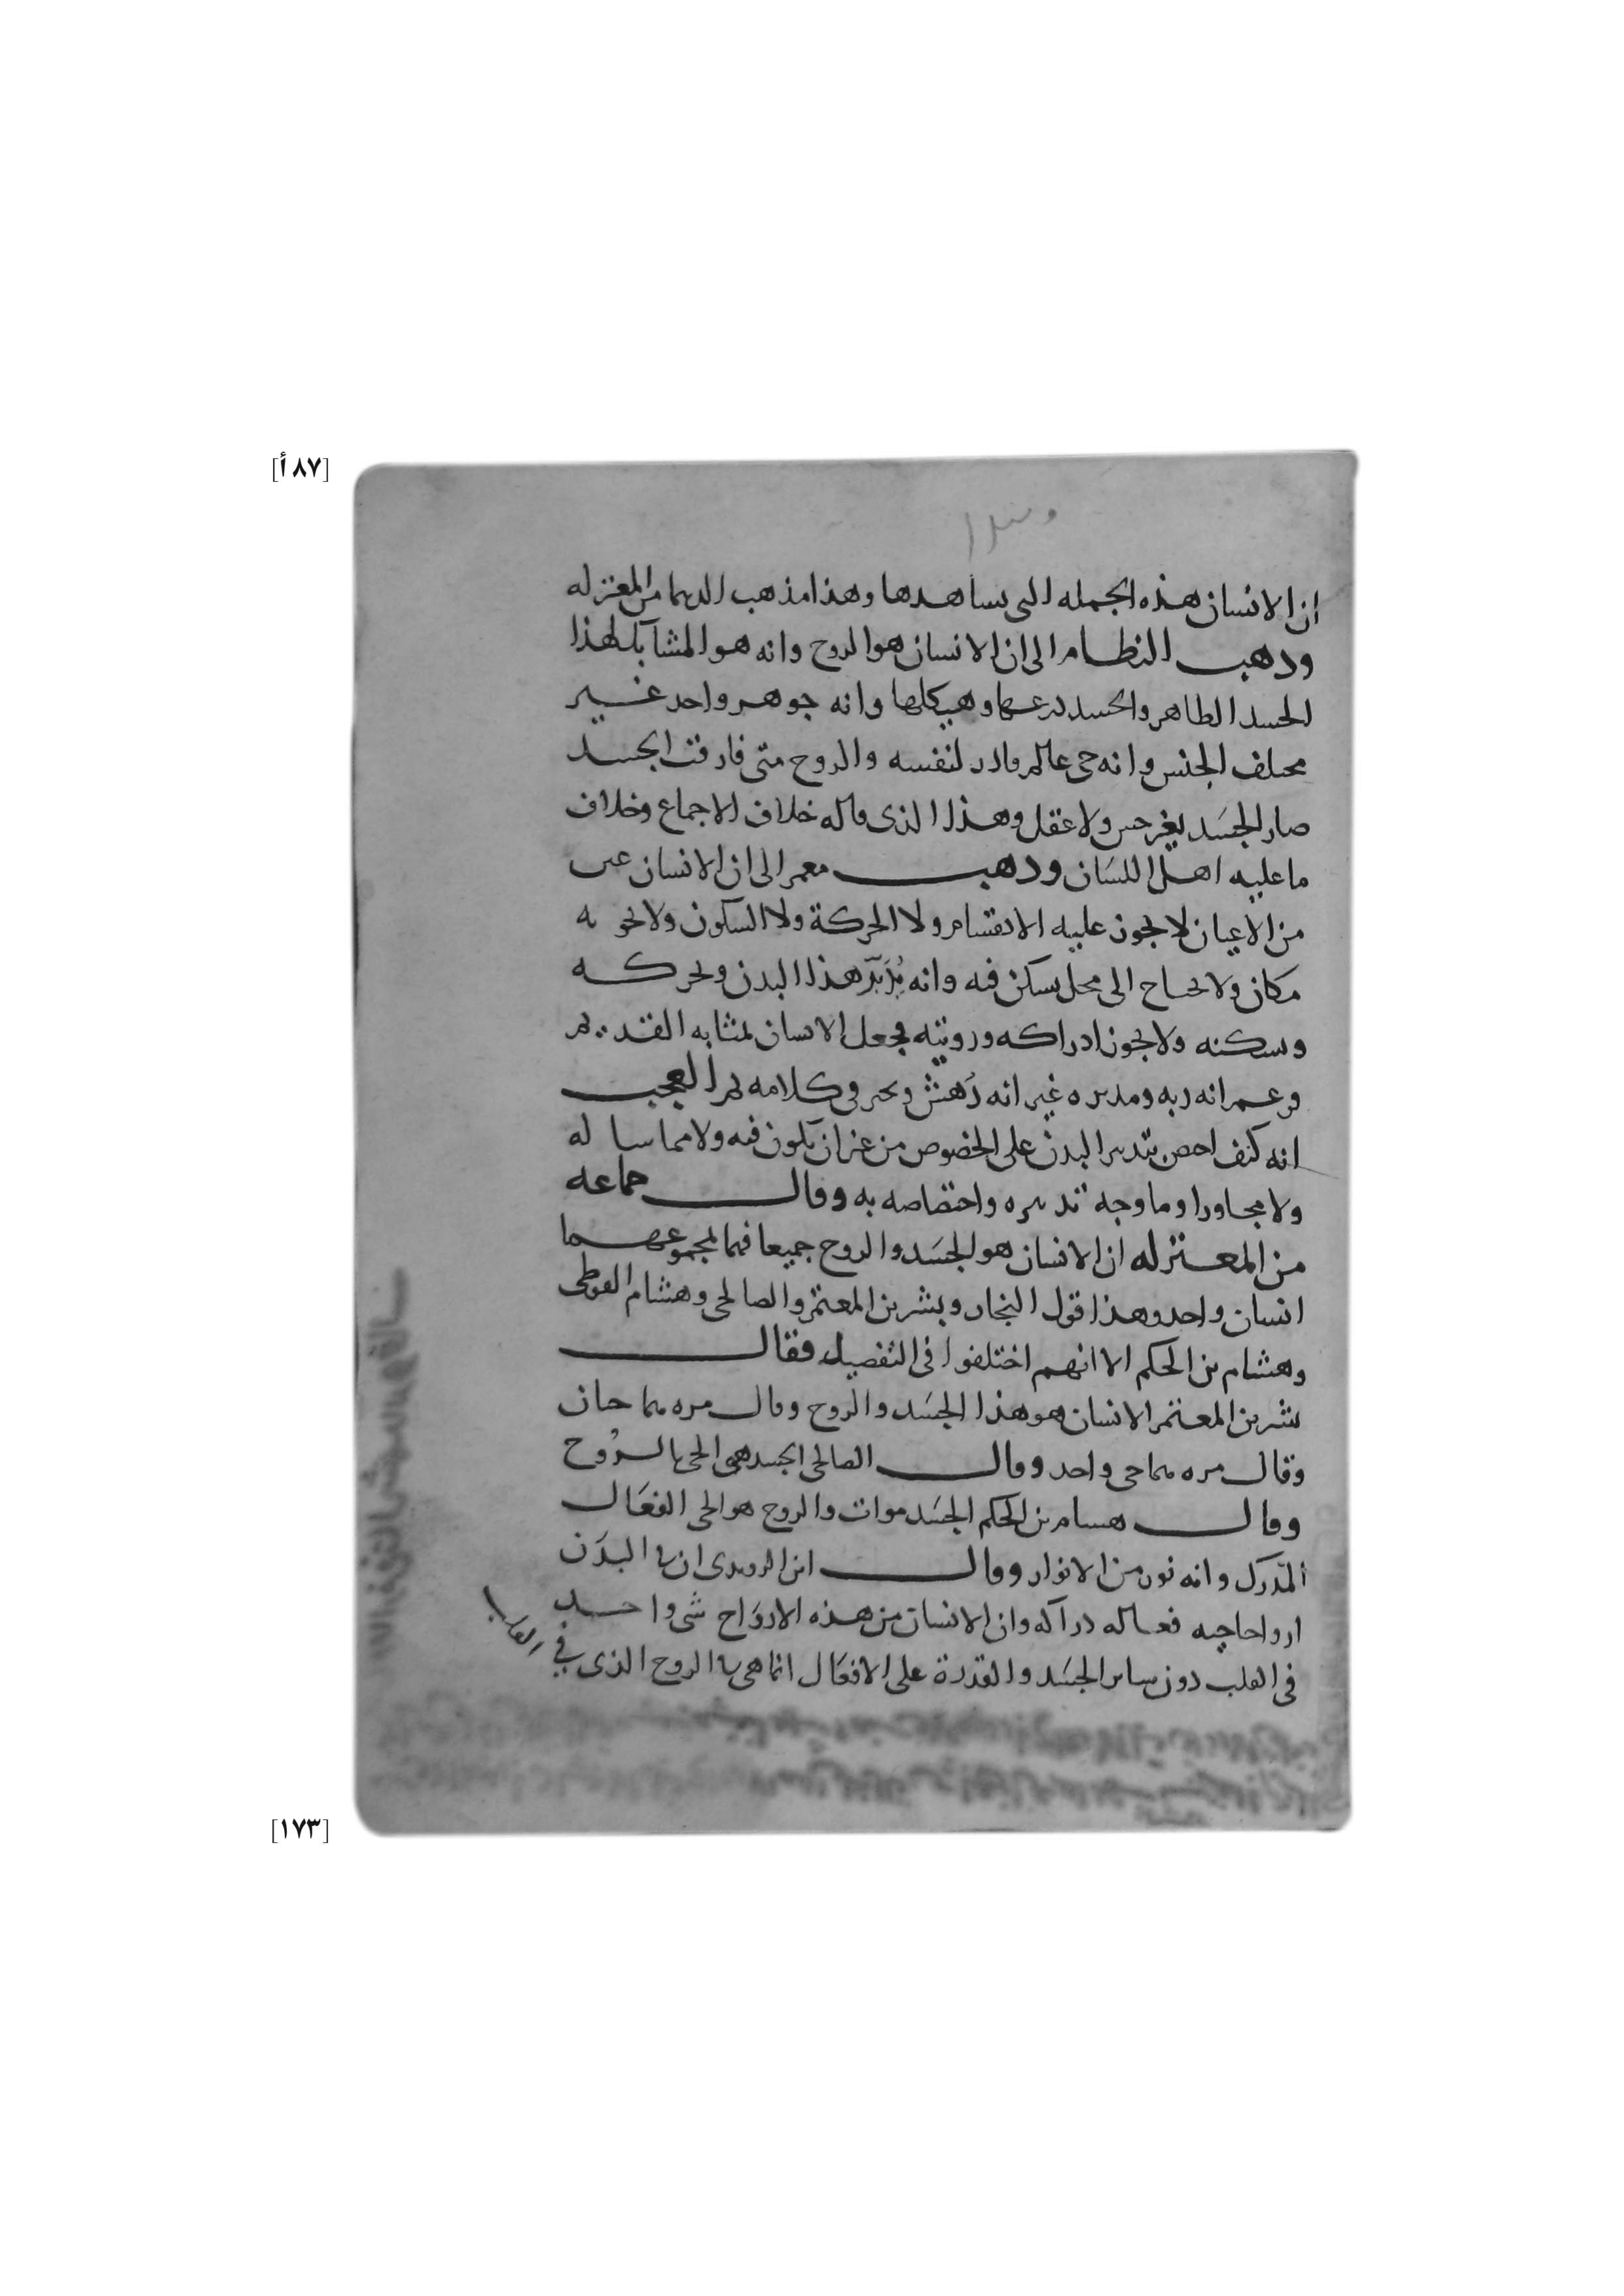 [٨٧أ]
ان الانسان هذه الجمله التى نساهدها وهذا مذهب الدهما من المعتزله
ودهب النظام الى ان الانسان هو الروح وانه هو المشابك لهذا
الجسد الطاهر والجسد درعها وهيكلها وانه جوهر واحد غير
مختلف الجنس وانه حى عالم قادر لنفسه والروح متى فارقت الجسد
صار الجسَد بغير حس ولا عقل وهذا الذى قاله خلاف الاجماع وخلاف
ما عليه اهل اللسَان ودهب معمر الى ان الانسان عين
من الاعيان لا يجوز عليه الانقسام ولا الحركة ولا السكون ولا يحويه
مكان ولا يحتاج الى محل يسكن فيه وانه يُدَبّر هذا البدن ويحركه
ويسكنه ولا يجوز ادراكه ورويته فجعل الانسان بمثابه القديم
وزعم انه ربه ومدبره غير انه دَهش وتحير فى كلامه لم العجب
انه كيف اختص بتدبير البدن على الخصوص من غير ان يكون فيه ولا مماسا له
ولا مجاورا وما وجه تدبيره واختصاصه به وقال جماعه
من المعتزله ان الانسان هو الجسَد والروح جميعا فهما بمجموعهما
انسان واحد وهذا قول النجار وبشر بن المعتمر والصالحى وهشام الفوطى
وهشام بن الحكم الا انهم اختلفوا فى التفصيل فقال
بشر بن المعتمر الانسان هو هذا الجسَد والروح وقال مره هما حيان
وقال مره هما حى واحد وقال الصالحى الجسد هى الحى بالرُوح
وقال هسام بن الحكم الجسَد موات والروح هو الحى الفعَال
المدَرك وانه نور من الانوار وقال ابن الروندى ان فى البدَن
ارواحا حيه فعاله دراكه وان الانسان من هذه الاروَاح شى واحد
فى القلب دون ساير الجسَد والقدرة على الافعَال انما هى للروح الذى فى القلب
[١٧٣]